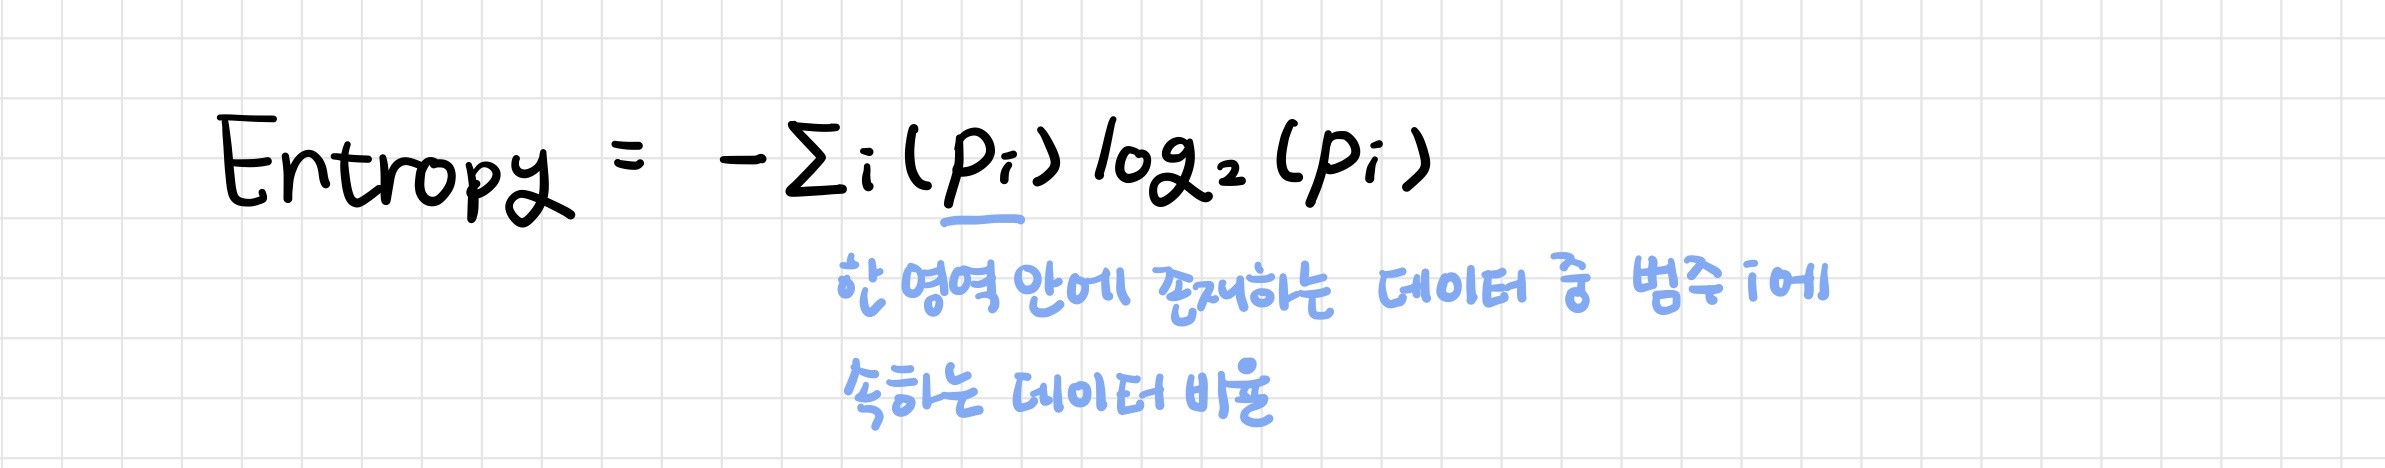 Entropy = -Σi (pi) log₂ (pi)
한 영역 안에 존재하는 데이터 중 범주 i에
속하는 데이터 비율